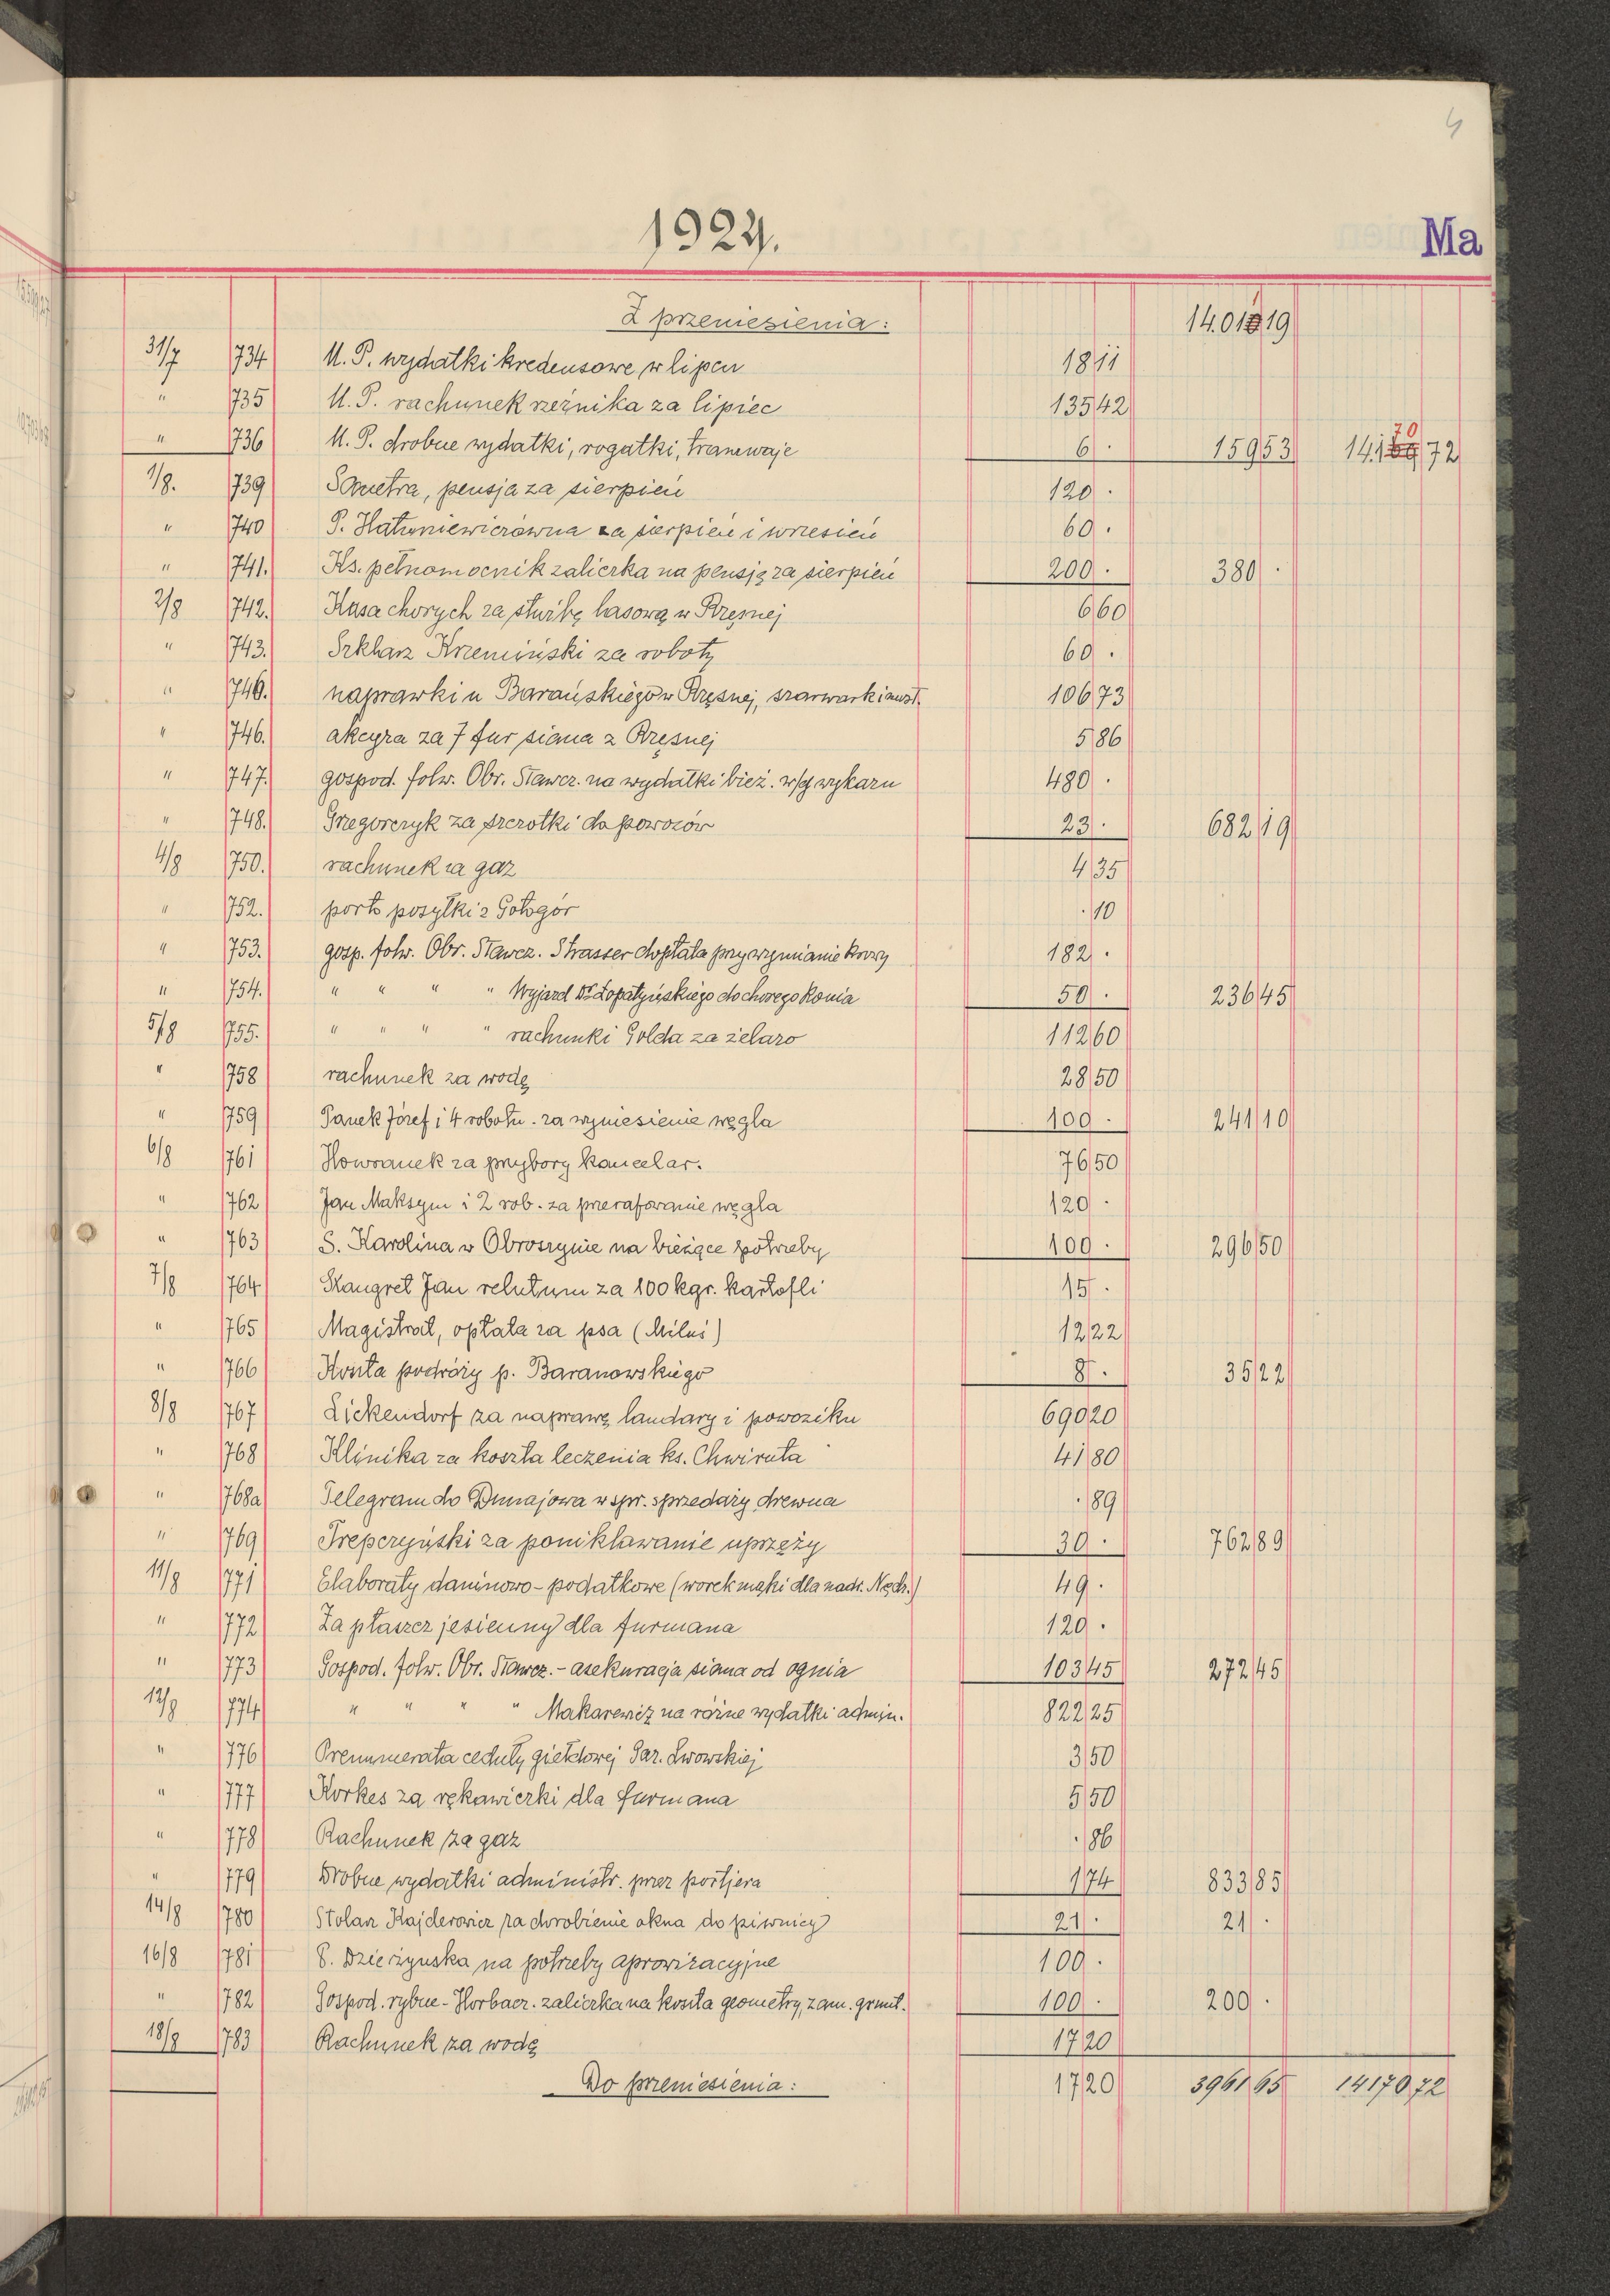 4
1924.
Ma
Z przeniesienia: 14.01 19
31/7 1734 U. P. wydatki kredensowe w lipcu 18 11
" 1735 U. P. rachunek rzeźnika za lipiec 135 42
" 1736 U. P. drobne wydatki, rogatki, tramwaje 6 . 159 53 14.1 70 72
1/8. 1739 Sametra, pensja za sierpień 120 .
" 1740 P. Hatuniewiczówna za sierpień i wrzesień 60 .
" 1741. Ks. pełnomocnik zaliczka na pensję za sierpień 200 . 380 .
2/8 1742. Kasa chorych za służbę lasową w Rzęsnej 6 60
" 1743. Szklarz Krzemiński za roboty 60 .
" 1746. naprawki u Barańskiego w Rzęsnej, szarwarki 106 73
" 1746. akcyza za 7 fur siana z Rzęsnej 5 86
" 1747. gospod. folw. Obr. Stawcz. na wydatki bież. w/g wykazu 480 .
" 1748. Gregorczyk za szczotki do powozów 23 . 682 19
4/8 1750. rachunek za gaz 4 35
" 1752. porto posyłki z Gołogór . 10
" 1753. gosp. folw. Obr. Stawcz. Strasser dopłata przy wymianie krowy 182 .
" 1754. " " " " Wyjazd Dr Łopatyńskiego do chorego konia 50 . 236 45
5/8 1755. " " " " rachunki Golda za żelazo 112 60
" 1758 rachunek za wodę 28 50
" 1759 Panek Józef i 4 robotn. za wyniesienie węgla 100 . 241 10
6/8 1761 Howranek za przybory kancelar. 76 50
" 1762 Jan Maksym i 2 rob. za przerafowanie węgla 120 .
" 1763 S. Karolina w Obroszynie na bieżące potrzeby 100 . 296 50
7/8 1764 Kangret Jan relutum za 100 kgr. kartofli 15 .
" 1765 Magistrat, opłata za psa (Miluś) 12 22
" 1766 Koszta podróży p. Baranowskiego 8 . 35 22
8/8 1767 Lickendorf za naprawę landary i powoziku 690 20
" 1768 Klinika za koszta leczenia ks. Chwiruta 41 80
" 1768a Telegram do Dunajowa w spr. sprzedaży drewna . 89
" 1769 Trepczyński za poniklawanie uprzęży 30 . 762 89
11/8 1771 Elaboraty daninowo-podatkowe (worek mąki dla nadr. Nech.) 49 .
" 1772 Za płaszcz jesienny dla furmana 120 .
" 1773 Gospod. folw. Obr. Stawcz. - asekuracja siana od ognia 103 45 272 45
12/8 1774 " " " " Makarewicz na różne wydatki admin. 822 25
" 1776 Prenumerata ceduły giełdowej Gaz. Lwowskiej 3 50
" 1777 Korkes za rękawiczki dla furmana 5 50
" 1778 Rachunek za gaz . 86
" 1779 Drobne wydatki administr. przez portjera 1 74 833 85
14/8 1780 Stolarz Kajderowicz za dorobienie okna do piwnicy 21 . 21 .
16/8 1781 S. Dzierżyńska na potrzeby aprowizacyjne 100 .
" 1782 Gospod. rybne - Horbacz. zaliczka na koszta geometry, zam. grunt. 100 . 200 .
18/8 1783 Rachunek za wodę 17 20
Do przeniesienia: 17 20 3961 65 14170 72